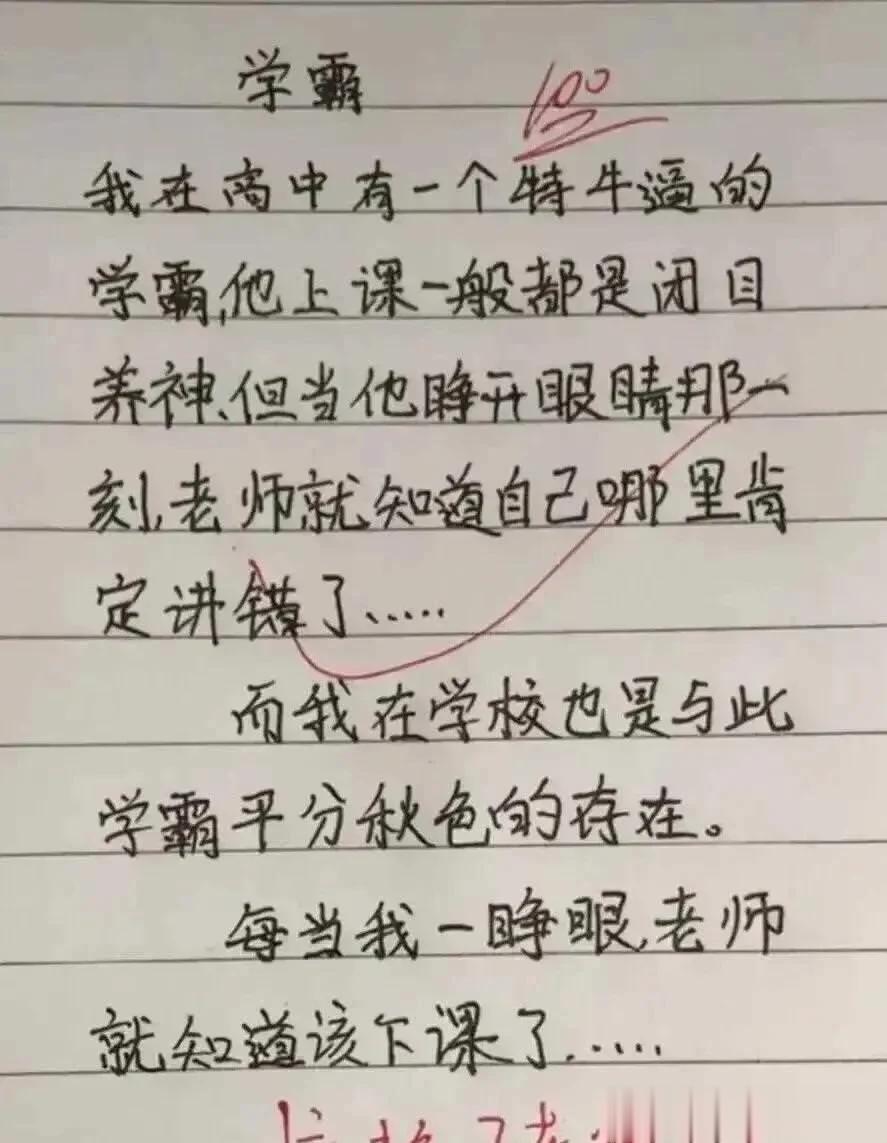 学霸
100
我在高中有一个特牛逼的
学霸,他上课一般都是闭目
养神、但当他睁开眼睛那一
刻,老师就知道自己哪里肯
定讲错了.....
而我在学校也是与此
学霸平分秋色的存在。
每当我一睁眼,老师
就知道该下课了.....